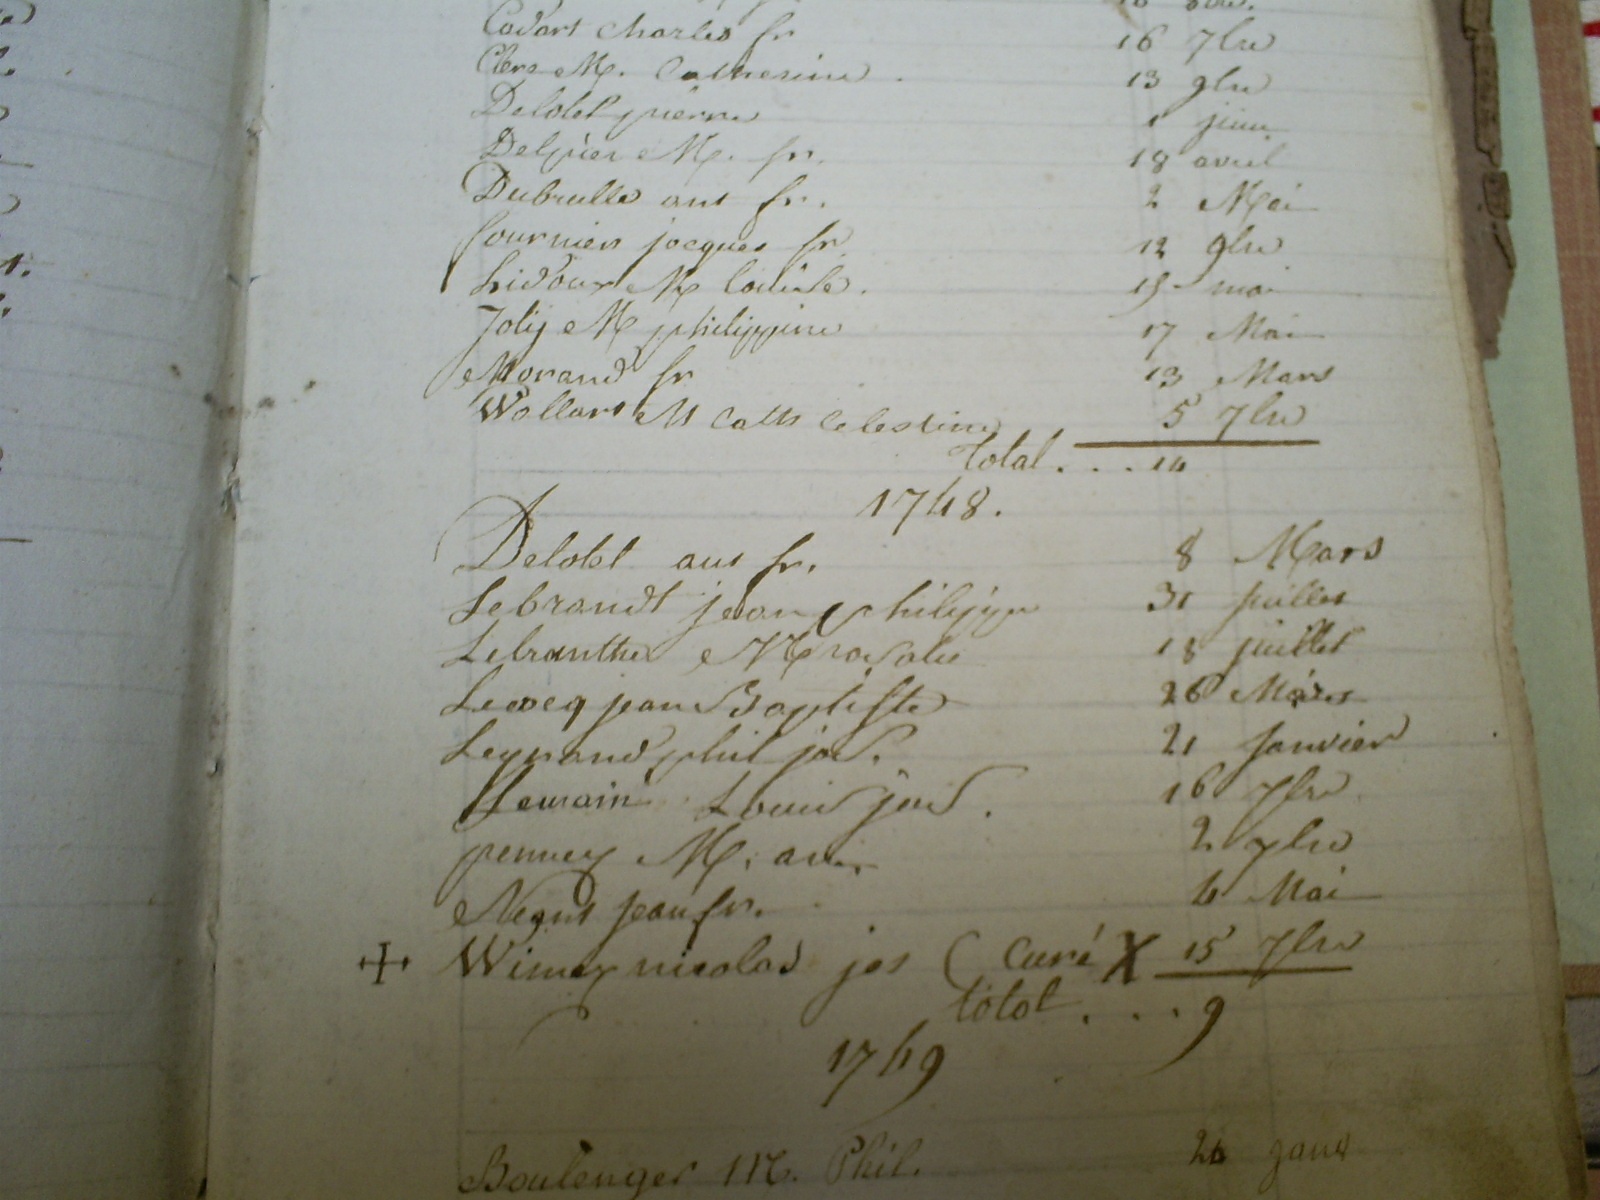 Codart Charles fr 16 7bre
Clere M. Catherine . 13 9bre
Delobel pierre 1 juin
Delpier M. fr. 18 avril
Dubrulle ant fr. 2 Mai
fournier jacques fr 12 9bre
hidoux M 15 mai
Joly M philippine 17 Mai
Morand fr 13 Mars
Wollart M Cath Celestine 5 7bre
total . . . 14
1748.
Delobel ant fr. 8 Mars
Lebrandt jean philippe 31 juillet
Lebranthe M rosalie 18 juillet
Lecocq jean Baptiste 26 Mars
Legrand phil jos. 21 janvier
Lemain Louis jos. 16 7bre
pennez M. an. 2 7bre
Negus jean fr. 4 Mai
Wimez nicolas jos ( Curé X 15 7bre
total . . . 9
1749
Boulenger M. Phil. 24 janv